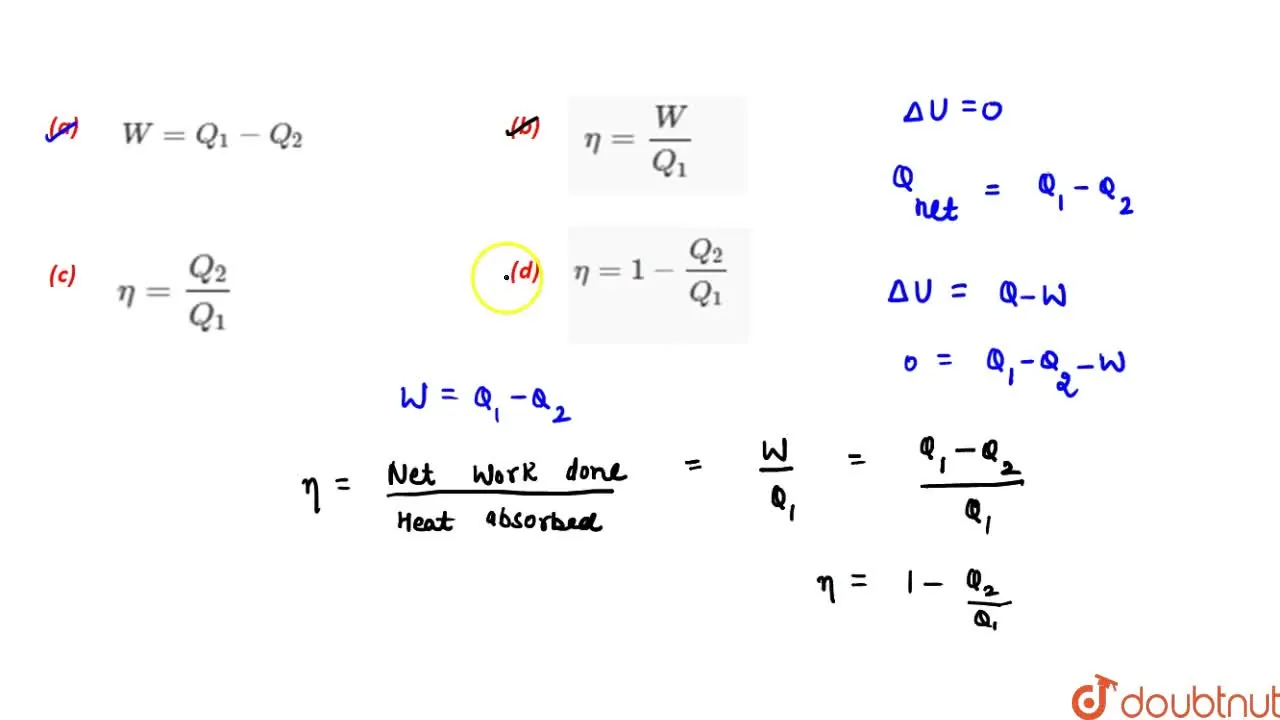 (a) W = Q₁ − Q₂
(b) η = W/Q₁
(c) η = Q₂/Q₁
(d) η = 1 − Q₂/Q₁
ΔU = 0
Q net = Q₁ − Q₂
ΔU = Q − W
0 = Q₁ − Q₂ − W
W = Q₁ − Q₂
η = Net Work done / Heat absorbed = W/Q₁ = Q₁ − Q₂ / Q₁
η = 1 − Q₂/Q₁
doubtnut